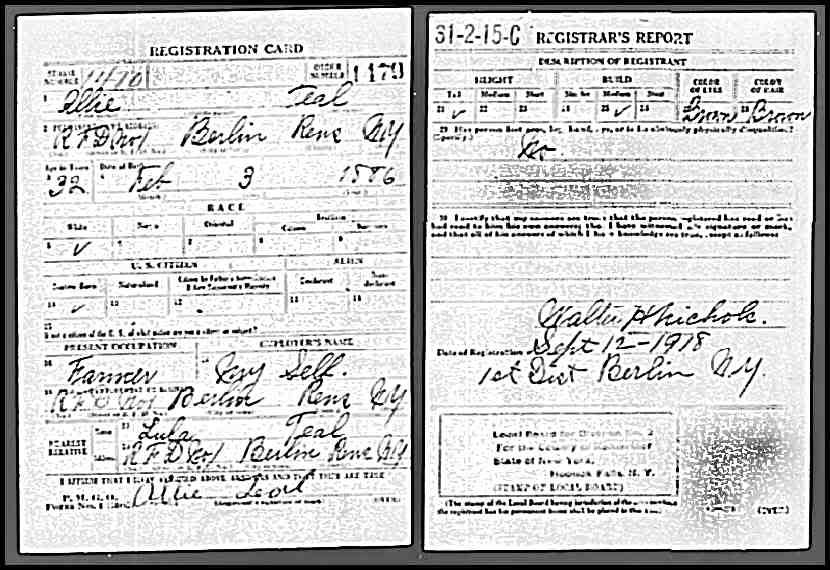 REGISTRATION CARD
SERIAL NUMBER 1470 ORDER NUMBER 1479
Ollie Teal
R F D No 1 Berlin Rens N Y
Age in Years Date of Birth
32 Feb 3 1886
RACE
White Negro Oriental Indian
Citizen
✓
U. S. CITIZEN ALIEN
Native Born Naturalized Declarant Non-declarant
10 ✓ 11 12 13 14
15
PRESENT OCCUPATION EMPLOYER'S NAME
Farmer My Self.
R F D No 1 Berlin Rens N Y
NEAREST RELATIVE Name Lula Teal
Address R F D No 1 Berlin Rens N Y
I AFFIRM THAT I HAVE VERIFIED ABOVE ANSWERS AND THAT THEY ARE TRUE
P. M. G. O.
Form No. 1 Ollie Teal (OVER)
31-2-15-C REGISTRAR'S REPORT
DESCRIPTION OF REGISTRANT
HEIGHT BUILD COLOR OF EYES COLOR OF HAIR
Tall Medium Short Slender Medium Stout
21 ✓ 22 23 24 25 ✓ 26 Brown Brown
29 Has person lost arm, leg, hand, eye, or is he obviously physically disqualified?
(Specify.) No
30 I certify that my answers are true; that the person registered has read or has
had read to him his own answers; that I have witnessed his signature or mark,
and that all of his answers of which I have knowledge are true, except as follows:
Walter H Nichols.
Date of Registration Sept 12-1918
1st Dist Berlin N.Y.
Local Board for Division No. 2
For the County of
State of New York,
Hoosick Falls, N. Y.
(STAMP OF LOCAL BOARD)
(The stamp of the Local Board having jurisdiction of the area in which
the registrant has his permanent home shall be placed in this box.) (OVER)